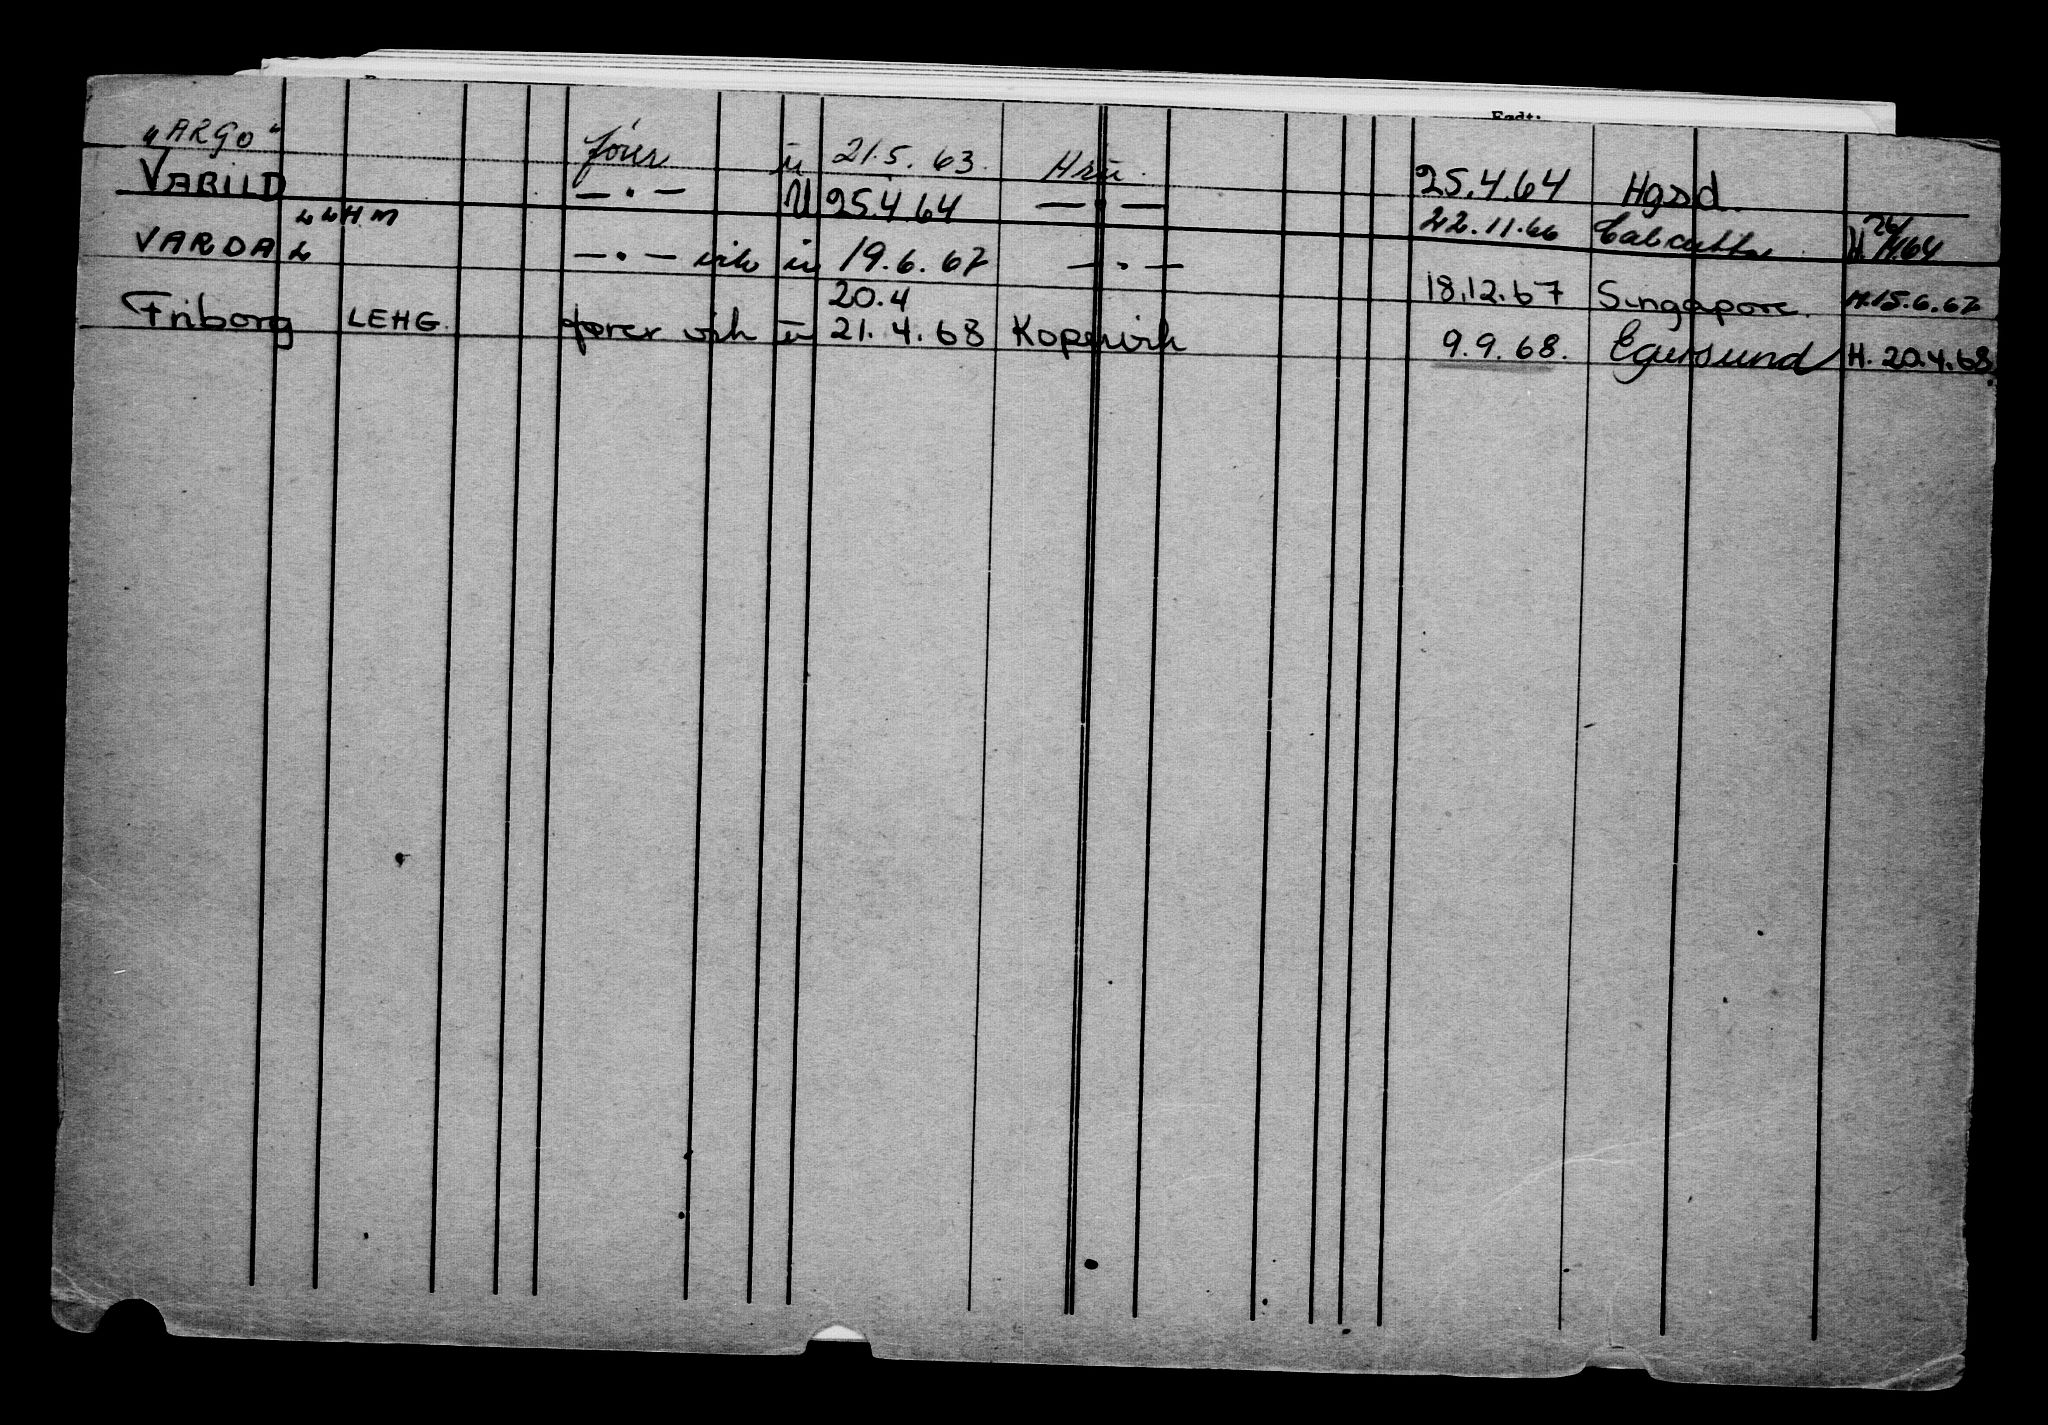 "ARGO" fører u 21.5.63. Hsü. 25.4.64 Hgsd.
VARILD LLHM —·— U 25.4.64 —·— 22.11.66 Calcutta H. 26/4.64
VARDA L —·— vik u 19.6.67 —·— 18.12.67 Singapore. H.15.6.67
20.4
Friborg LEHG. fører vik u 21.4.68 Kopervik 9.9.68. Egersund H. 20.4.68.
Født: